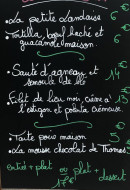 • La petite Landaise
• Tortilla, bœuf haché et
guacamole maison
• Sauté d'agneau et 14
semoule de blé
• Filet de lieu noir, crème à 13
l'estragon et polenta crémeuse
• Tarte poire maison
• La mousse chocolat de Thomas
entrée + plat ou plat + dessert
17€